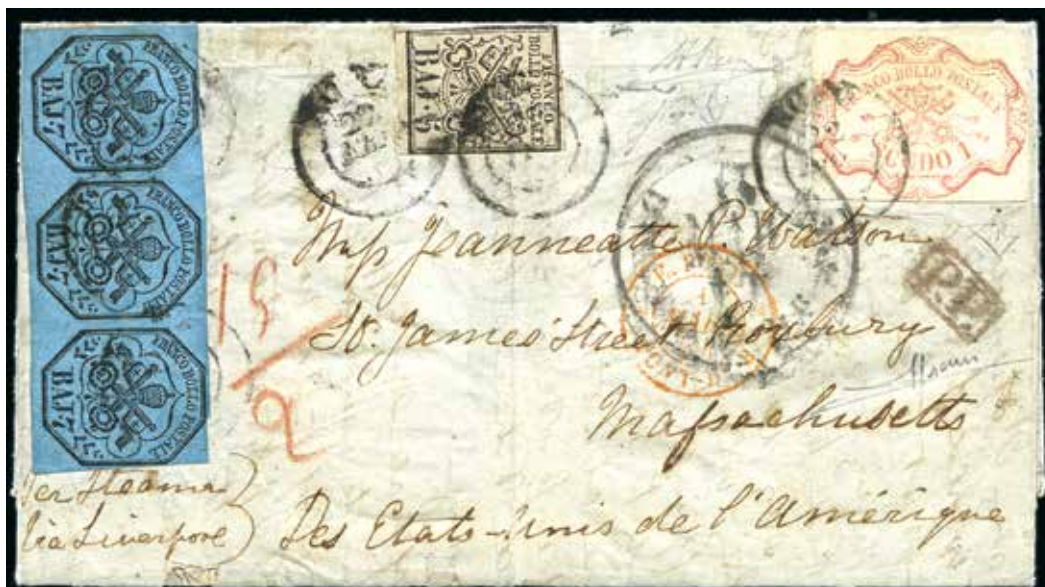 FRANCO BOLLO POSTALE
BAJ 7
FRANCO BOLLO POSTALE
BAJ 7
FRANCO BOLLO POSTALE
BAJ 7
FRANCO
BOLLO POSTALE
BAJ·5
FRANCO BOLLO POSTALE
SCUDO 1
ROMA
P.D.
19
2
Miss Jeanneatte P. Watson
St. James' Street Roxbury
Massachusetts
Des Etats-Unis de l'Amérique
Per Steamer
Via Liverpool